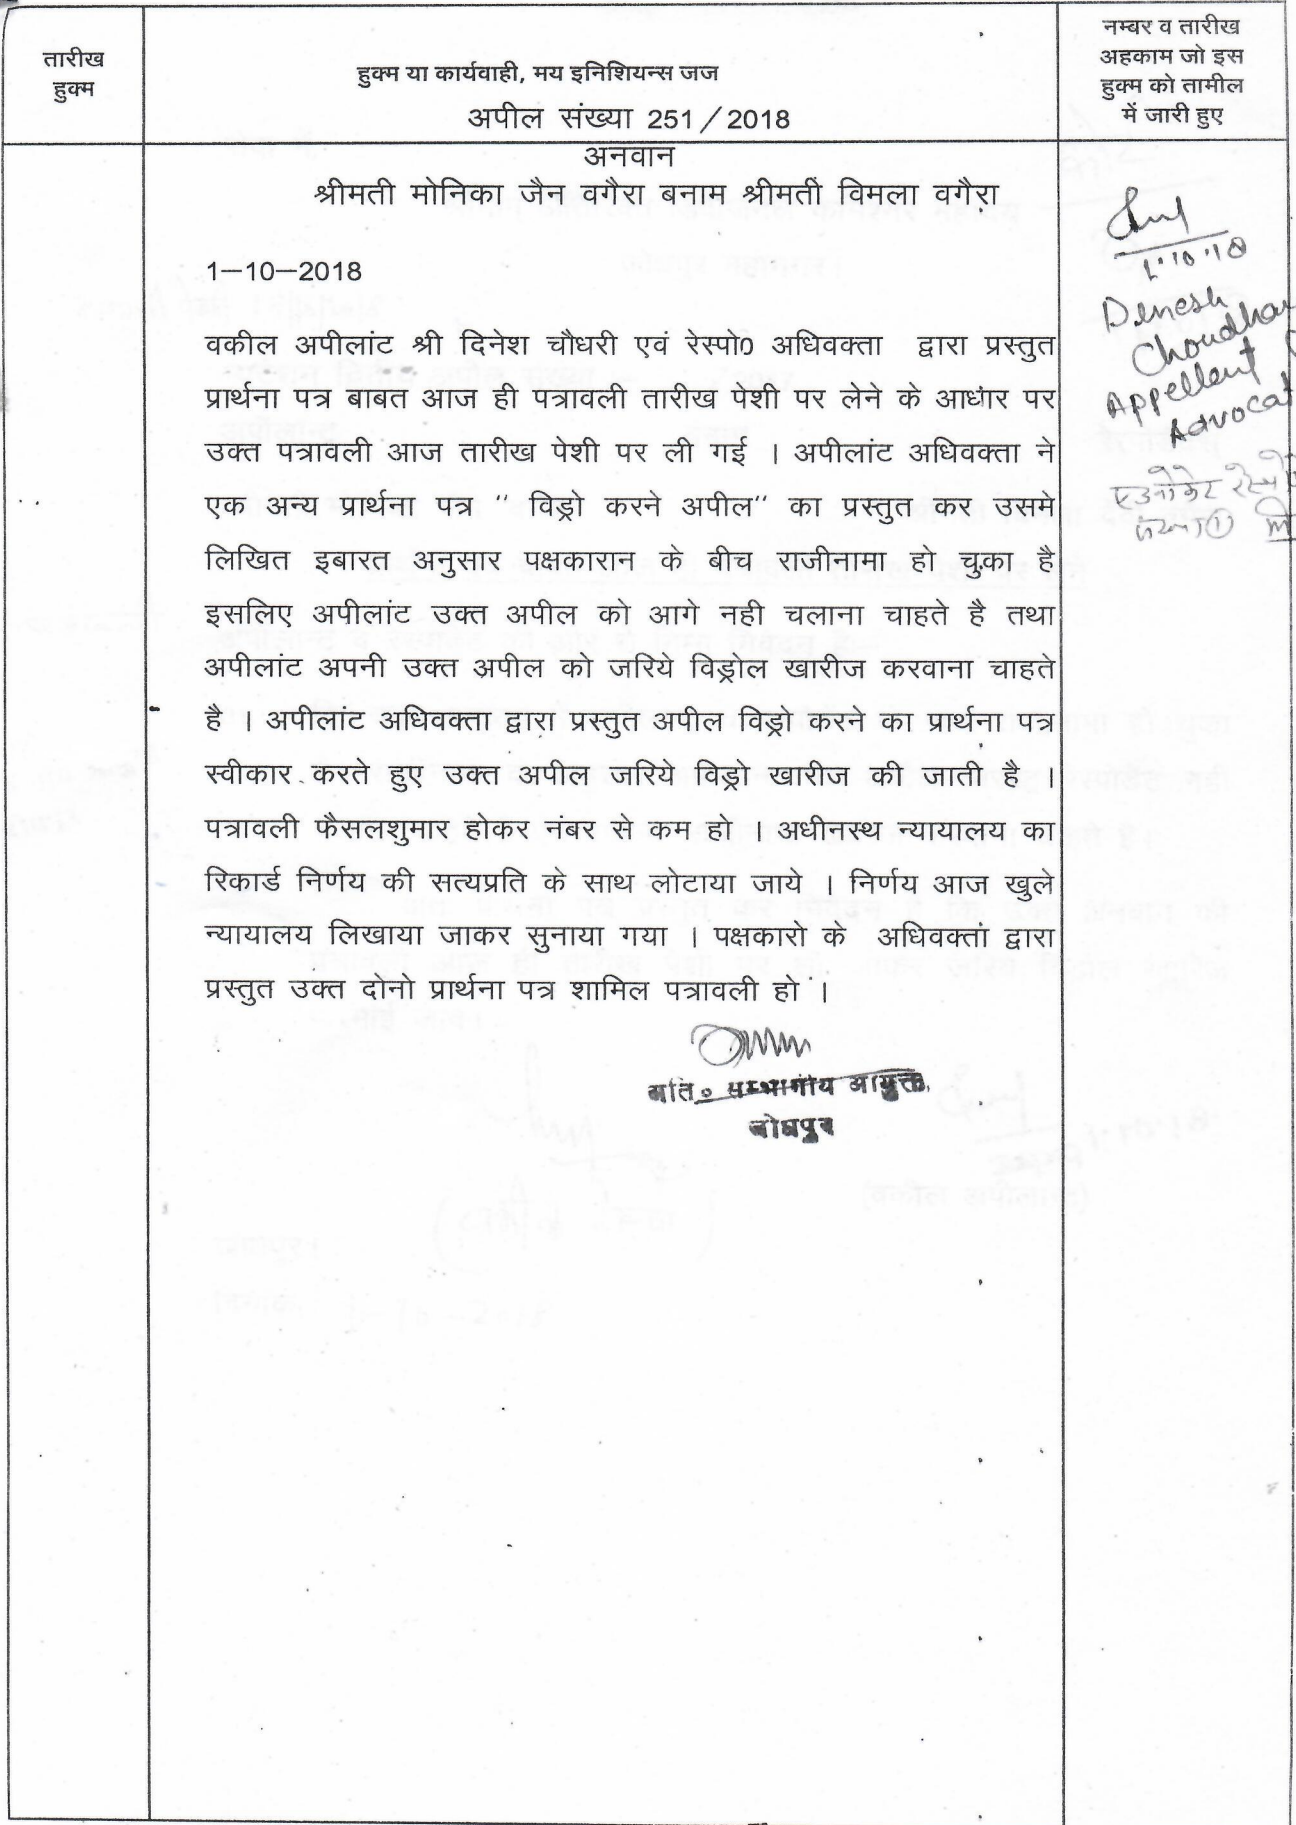 तारीख
हुक्म
हुक्म या कार्यवाही, मय इनिशियन्स जज
अपील संख्या 251/2018
नम्बर व तारीख
अहकाम जो इस
हुक्म को तामील
में जारी हुए
अनवान
श्रीमती मोनिका जैन वगैरा बनाम श्रीमती विमला वगैरा
1-10-2018
वकील अपीलांट श्री दिनेश चौधरी एवं रेस्पो0 अधिवक्ता द्वारा प्रस्तुत
प्रार्थना पत्र बाबत आज ही पत्रावली तारीख पेशी पर लेने के आधार पर
उक्त पत्रावली आज तारीख पेशी पर ली गई । अपीलांट अधिवक्ता ने
एक अन्य प्रार्थना पत्र '' विड्रो करने अपील'' का प्रस्तुत कर उसमे
लिखित इबारत अनुसार पक्षकारान के बीच राजीनामा हो चुका है
इसलिए अपीलांट उक्त अपील को आगे नही चलाना चाहते है तथा
अपीलांट अपनी उक्त अपील को जरिये विड्रोल खारीज करवाना चाहते
है । अपीलांट अधिवक्ता द्वारा प्रस्तुत अपील विड्रो करने का प्रार्थना पत्र
स्वीकार करते हुए उक्त अपील जरिये विड्रो खारीज की जाती है ।
पत्रावली फैसलशुमार होकर नंबर से कम हो । अधीनस्थ न्यायालय का
रिकार्ड निर्णय की सत्यप्रति के साथ लोटाया जाये । निर्णय आज खुले
न्यायालय लिखाया जाकर सुनाया गया । पक्षकारो के अधिवक्ता द्वारा
प्रस्तुत उक्त दोनो प्रार्थना पत्र शामिल पत्रावली हो ।
अति० सम्भागीय आयुक्त
जोधपुर
1.10.18
Dinesh
Choudhar
Appellent
Advocat